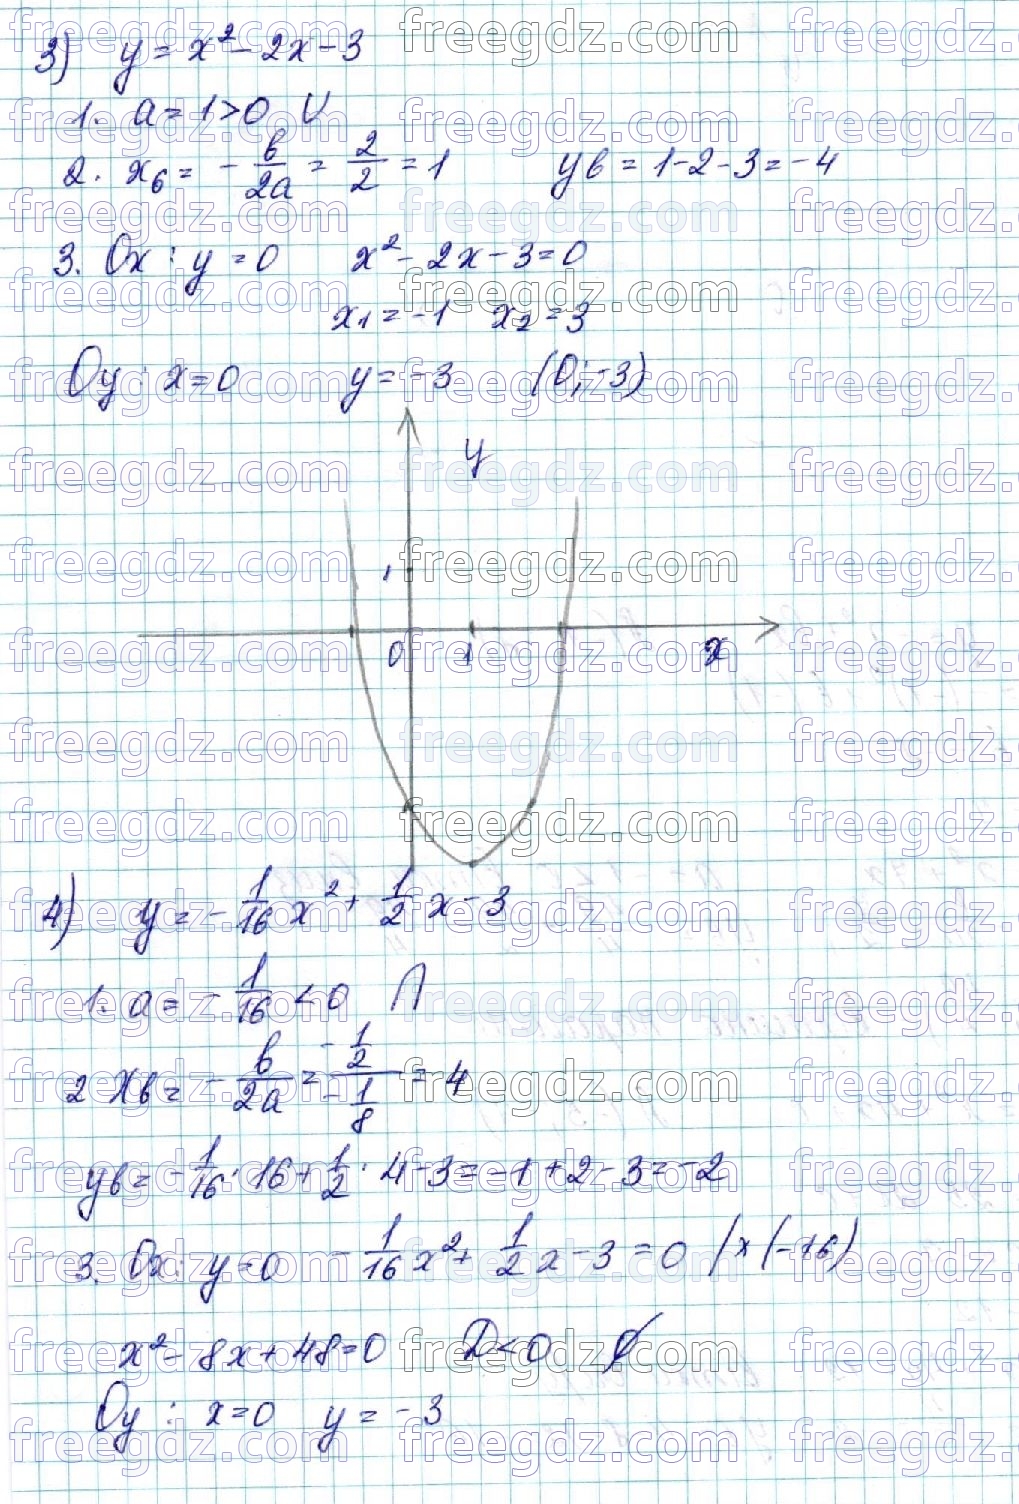 3) y = x² - 2x - 3
1. a = 1 > 0 ∪
2. xв = - в/2a = 2/2 = 1 yв = 1 - 2 - 3 = -4
3. Ox : y = 0 x² - 2x - 3 = 0
x₁ = -1 x₂ = 3
Oy : x = 0 y = -3 (0; -3)
y
1
0 1 x
4) y = - 1/16 x² + 1/2 x - 3
1. a = - 1/16 < 0 ∩
2 xв = - в/2a = (- 1/2)/(- 1/8) = 4
yв = - 1/16 · 16 + 1/2 · 4 - 3 = -1 + 2 - 3 = -2
3. Ox: y = 0 - 1/16 x² + 1/2 x - 3 = 0 / × (-16)
x² - 8x + 48 = 0 D < 0 ∅
Oy : x = 0 y = -3
freegdz.com